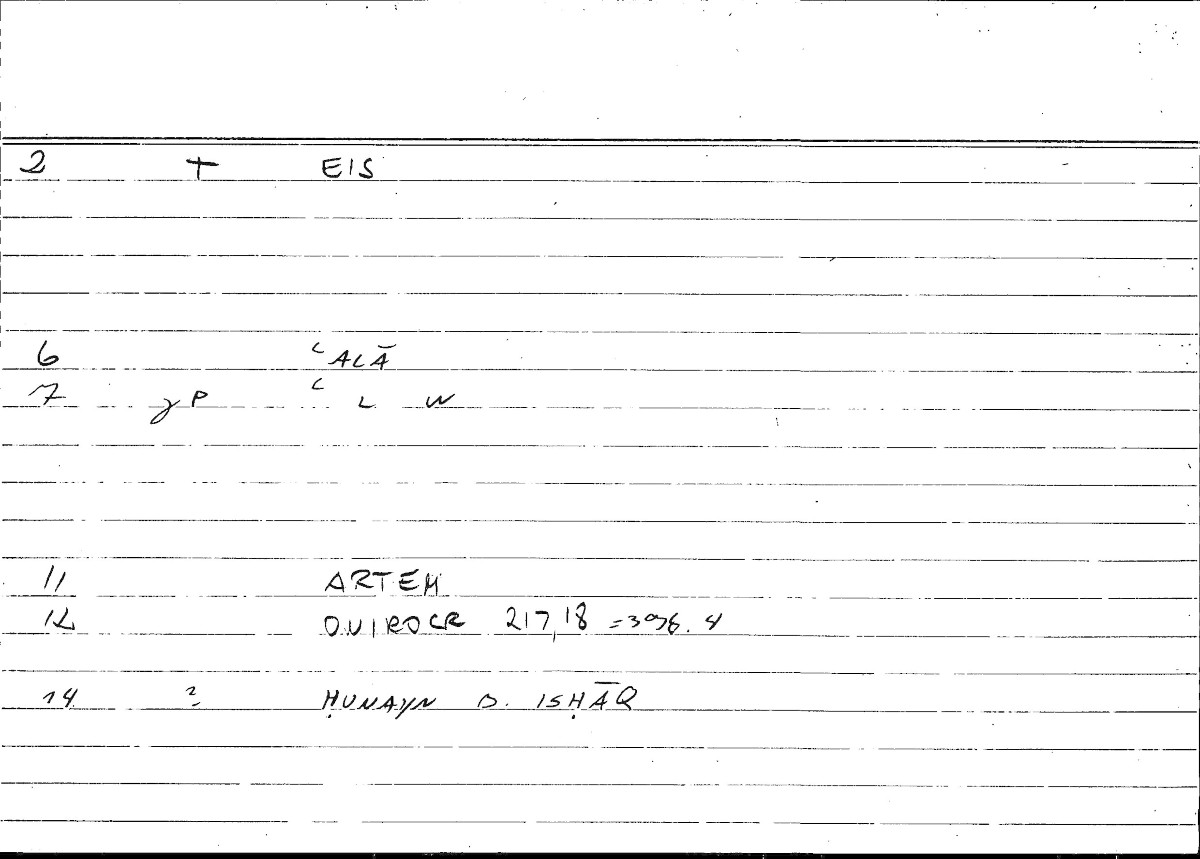 2 + EIS
6 ʿALĀ
7 γP ʿ L W
11 ARTEM
12 OVIROCR 217,18 = 398.4
14 2 ḤUNAYN B. ISḤĀQ